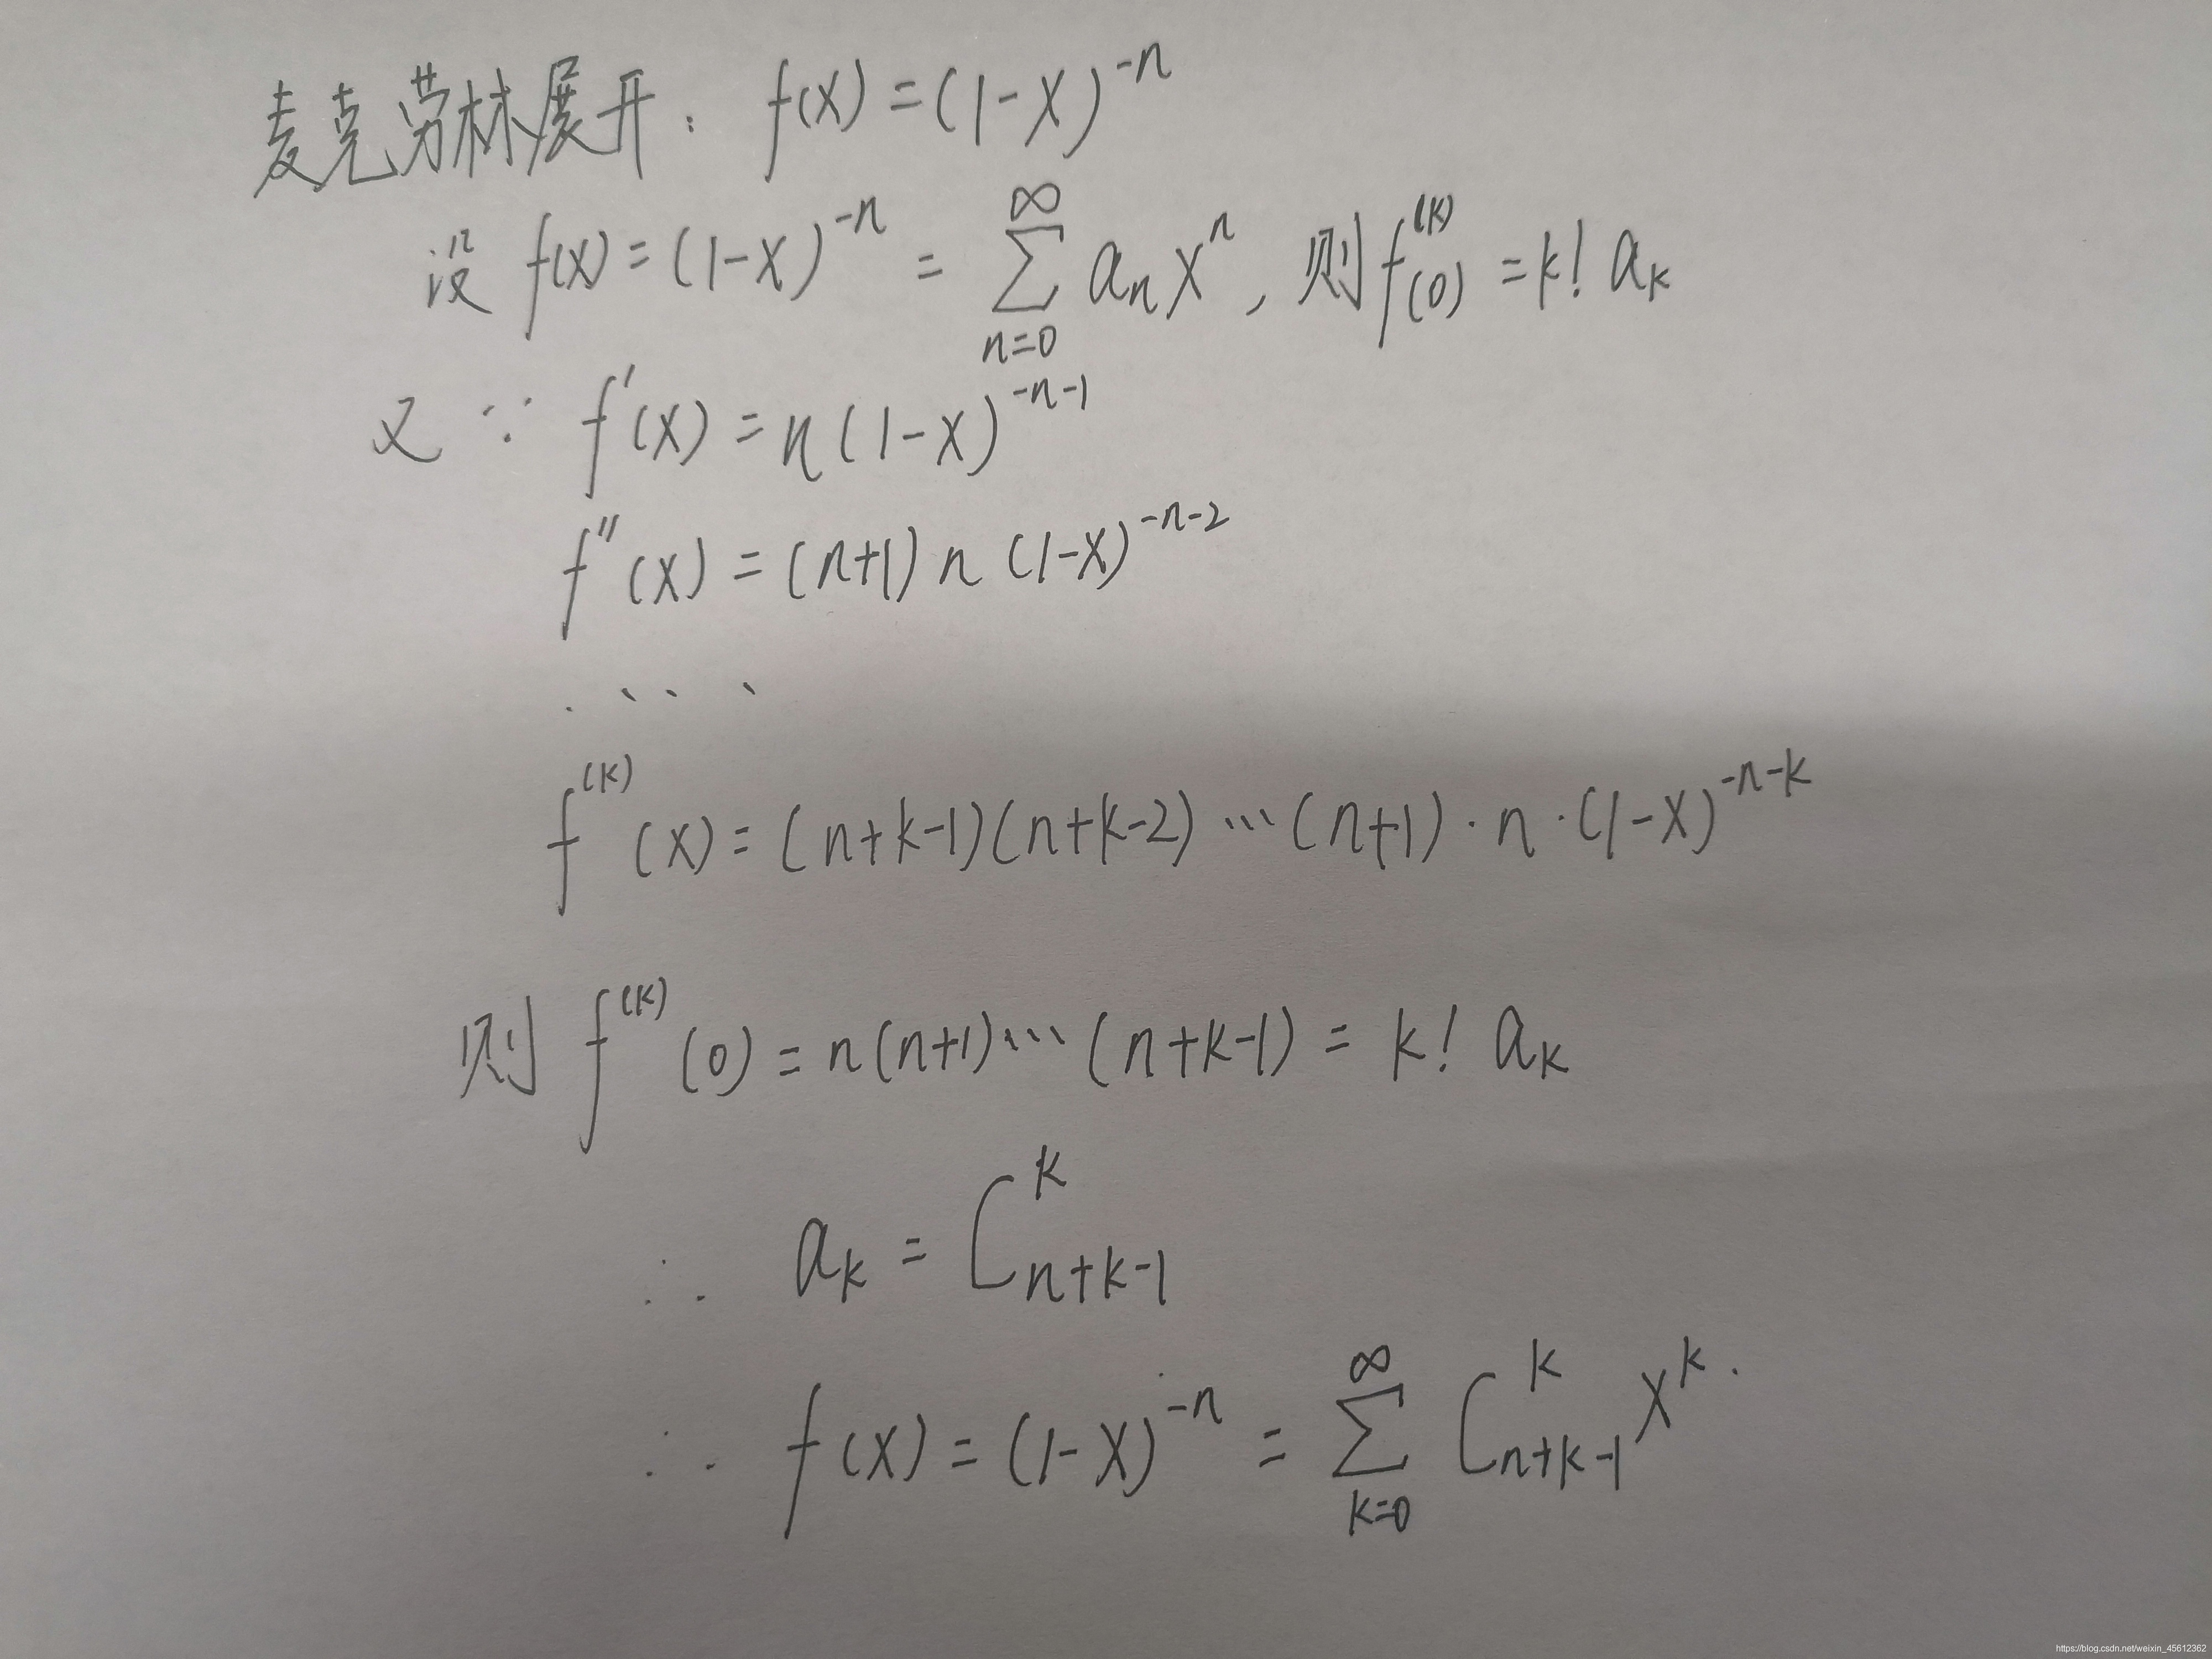 麦克劳林展开: f(x)=(1-x)^{-n}
设 f(x)=(1-x)^{-n} = \sum_{n=0}^{∞} a_n x^n, 则 f^{(k)}(0) = k! a_k
又 ∵ f'(x) = n(1-x)^{-n-1}
f''(x) = (n+1) n (1-x)^{-n-2}
....
f^{(k)}(x) = (n+k-1)(n+k-2)…(n+1)·n·(1-x)^{-n-k}
则 f^{(k)}(0) = n(n+1)…(n+k-1) = k! a_k
∴ a_k = C_{n+k-1}^{k}
∴ f(x) = (1-x)^{-n} = \sum_{k=0}^{∞} C_{n+k-1}^{k} x^k.
https://blog.csdn.net/weixin_45612362